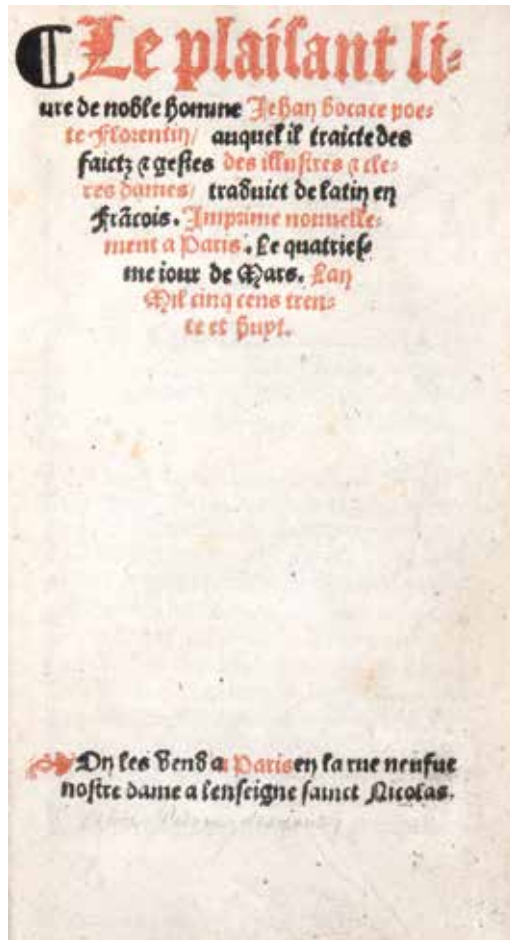 Le plaisant li-
ure de noble homme Jehan bocace poe-
te Florentin/ auquel il traicte des
faictz ⁊ gestes des illustres ⁊ cle-
res dames/ traduict de latin en
Frãcois. Imprime nouuelle-
ment a Paris. Le quatries-
me iour de Mars. Lan
Mil cinq cens tren-
te et huyt.
On les vend a Paris en la rue neufue
nostre dame a lenseigne sainct Nicolas.